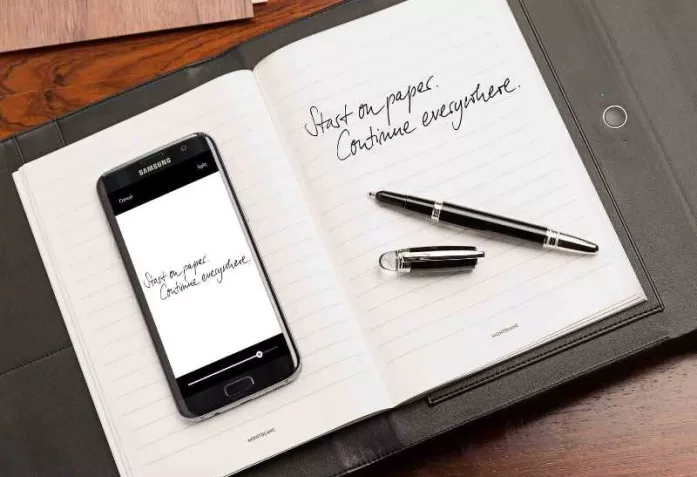 SAMSUNG
Cancel
Split
Start on paper.
Continue everywhere.
MONTBLANC
Start on paper.
Continue everywhere.
MONTBLANC